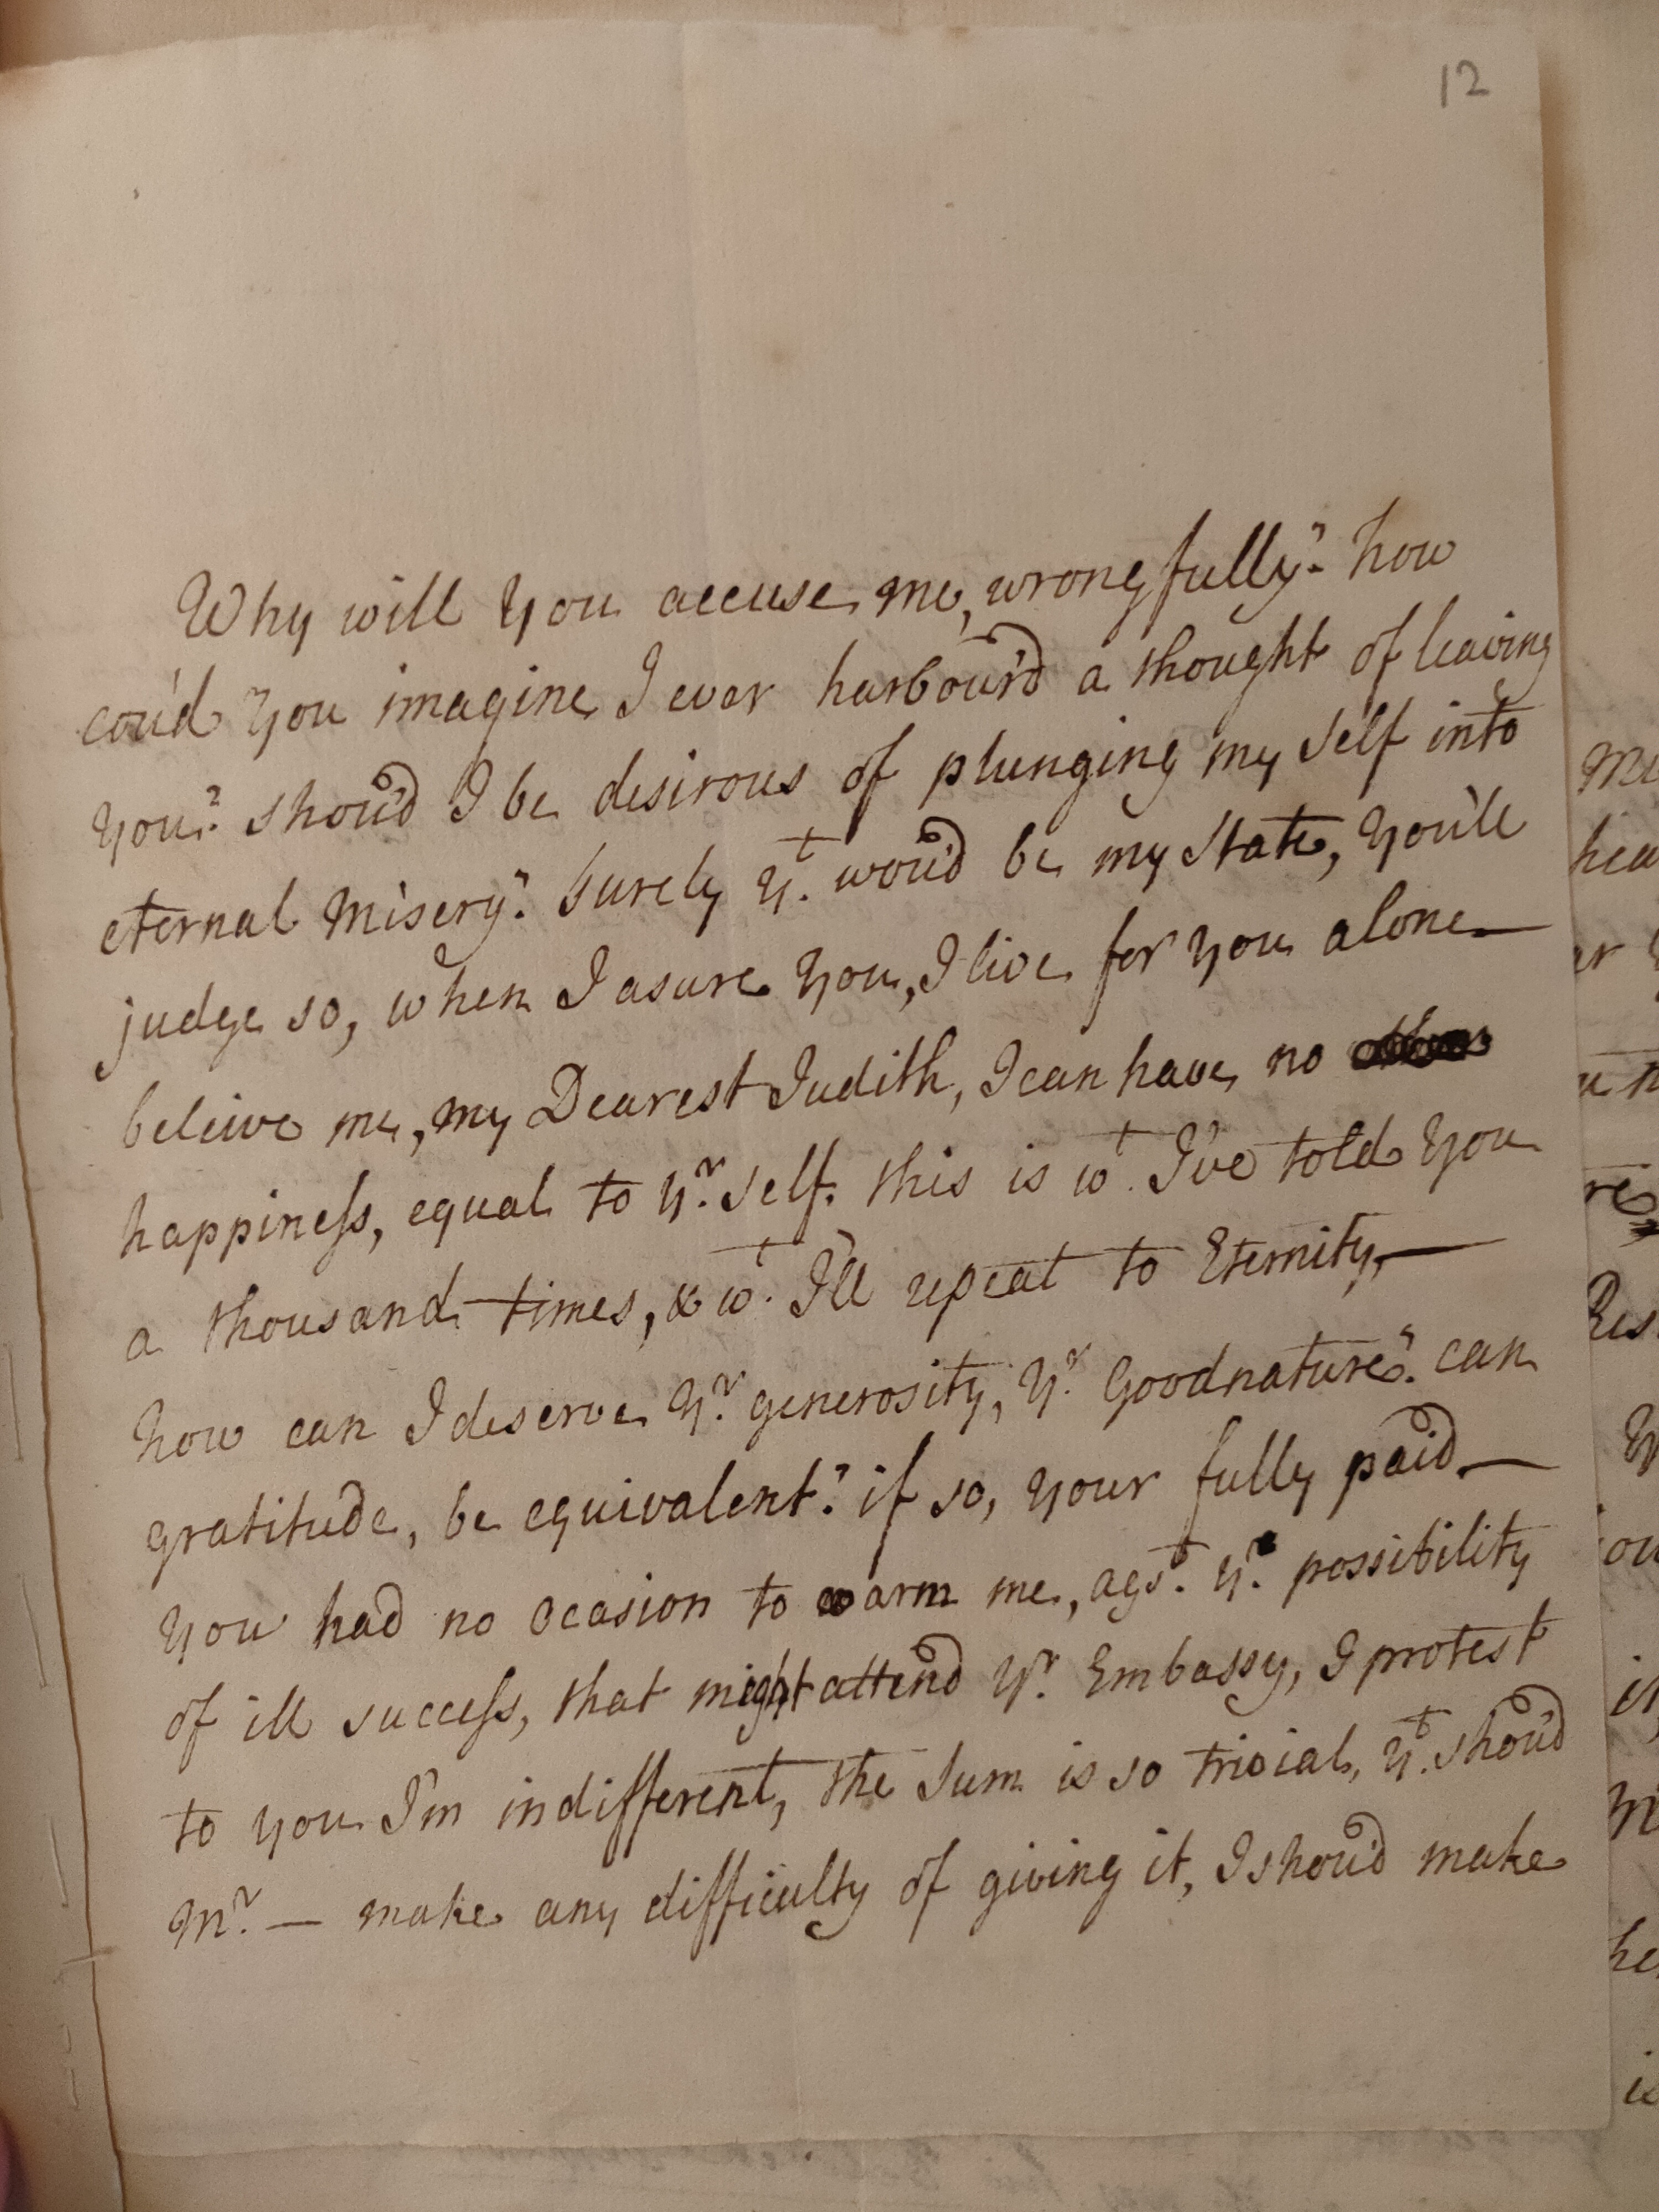 12
Why will you accuse me, wrongfully? how
cou'd you imagine I ever harbour'd a thought of leaving
you? shou'd I be desirous of plunging my self into
eternal Misery? Surely yt. wou'd be my State, you'll
judge so, when I asure you, I live for you alone—
beleive me, my Dearest Judith, I can have no
happiness, equal to yr. self. this is wt. I've told you
a thousand times, & wt. I'll repeat to Eternity,—
how can I deserve yr. generosity, yr. Goodnature? can
gratitude, be equivalent? if so, your fully paid—
you had no ocasion to arm me, agst. ye. possibility
of ill success, that might attend yr. Embassy, I protest
to you I'm indifferent, the Sum is so trivial, yt. shou'd
Mr. — make any difficulty of giving it, I shou'd make